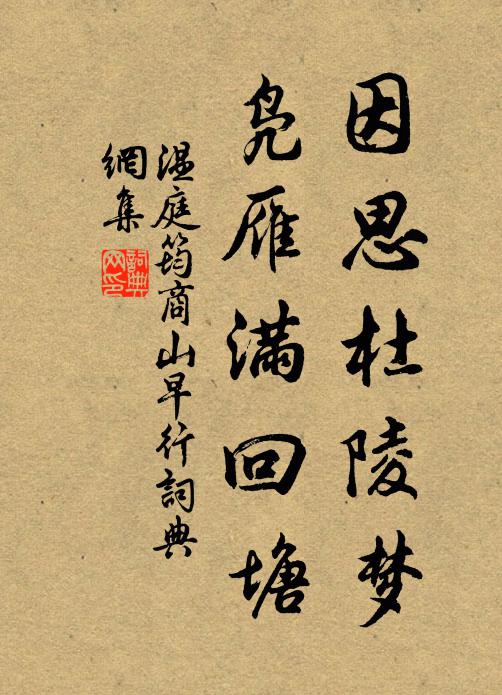 因思杜陵梦
凫雁满回塘
温庭筠商山早行詞典
網集
詞典
网印